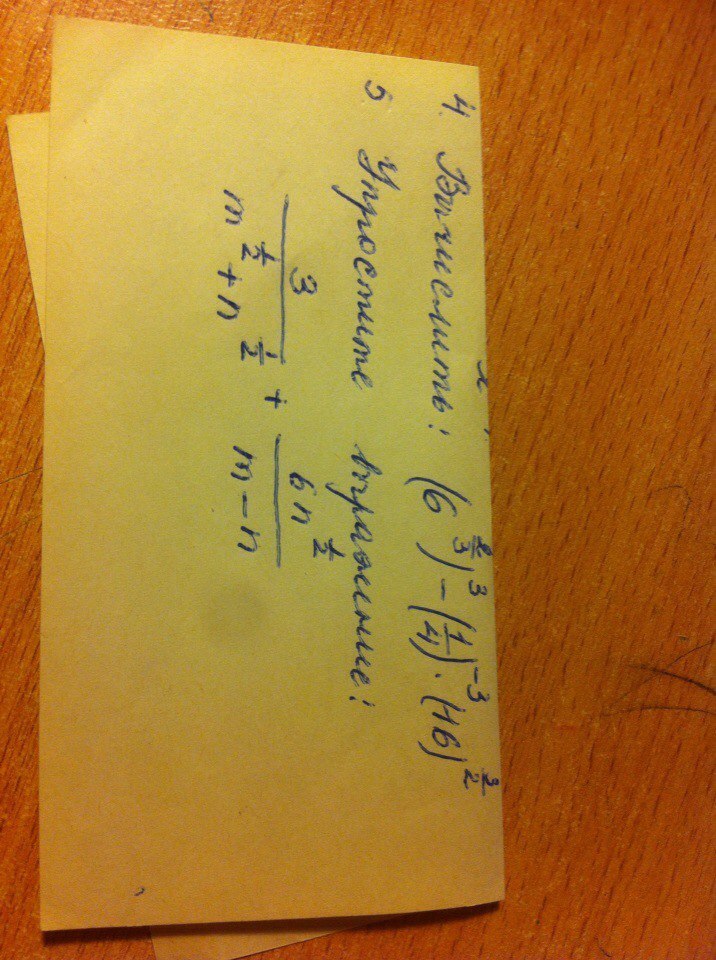 4. Вычислить: (6^(2/3))^3 − (1/4)^(−3) · (16)^(3/2)
5 Упростите выражение:
3/(m^(1/2) + n^(1/2)) + 6n^(1/2)/(m − n)